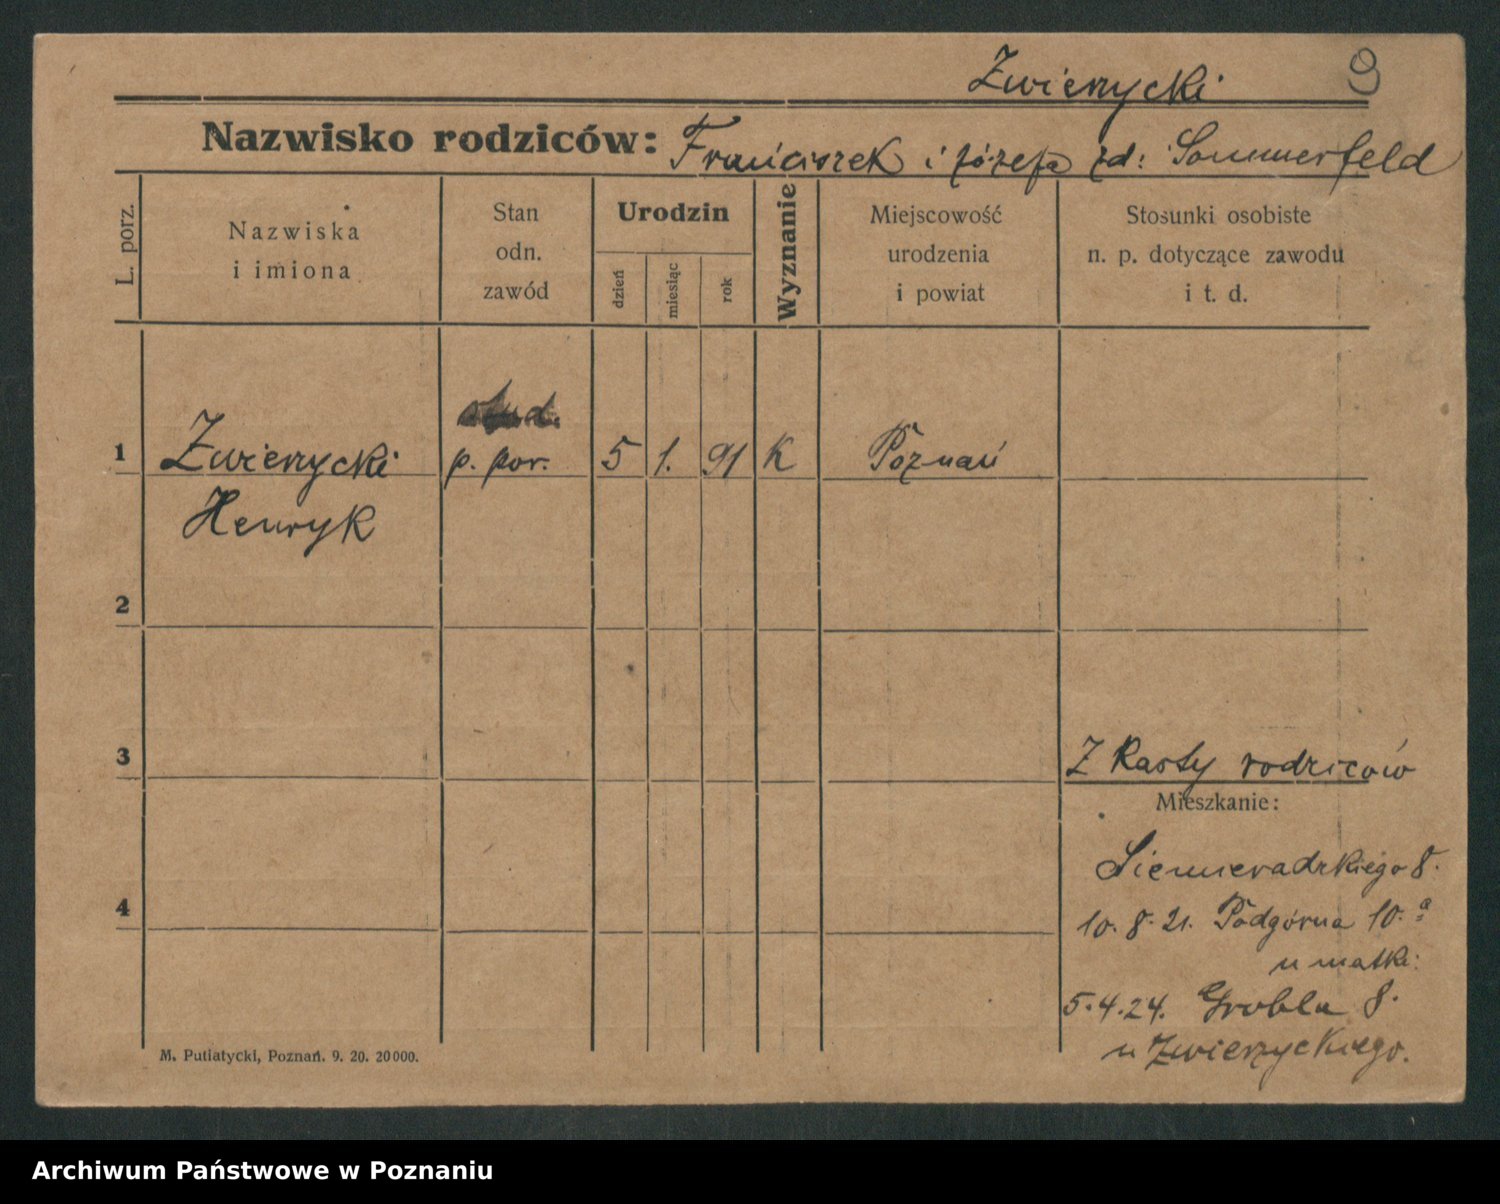 Zwierzycki 9
Nazwisko rodziców: Franciszek i Józefa zd: Sommerfeld
L. porz.
Nazwiska
i imiona
Stan
odn.
zawód
Urodzin
dzień
miesiąc
rok
Wyznanie
Miejscowość
urodzenia
i powiat
Stosunki osobiste
n. p. dotyczące zawodu
i t. d.
stud.
1 Zwierzycki p. por. 5 1. 91 K Poznań
Henryk
2
3
Z Karty rodziców
Mieszkanie:
Siemieradzkiego 8.
4
10. 8. 21. Podgórna 10. a
u matki:
5.4.24. Grobla 8.
u Zwierzyckiego.
M. Putiatycki, Poznań. 9. 20. 20000.
Archiwum Państwowe w Poznaniu